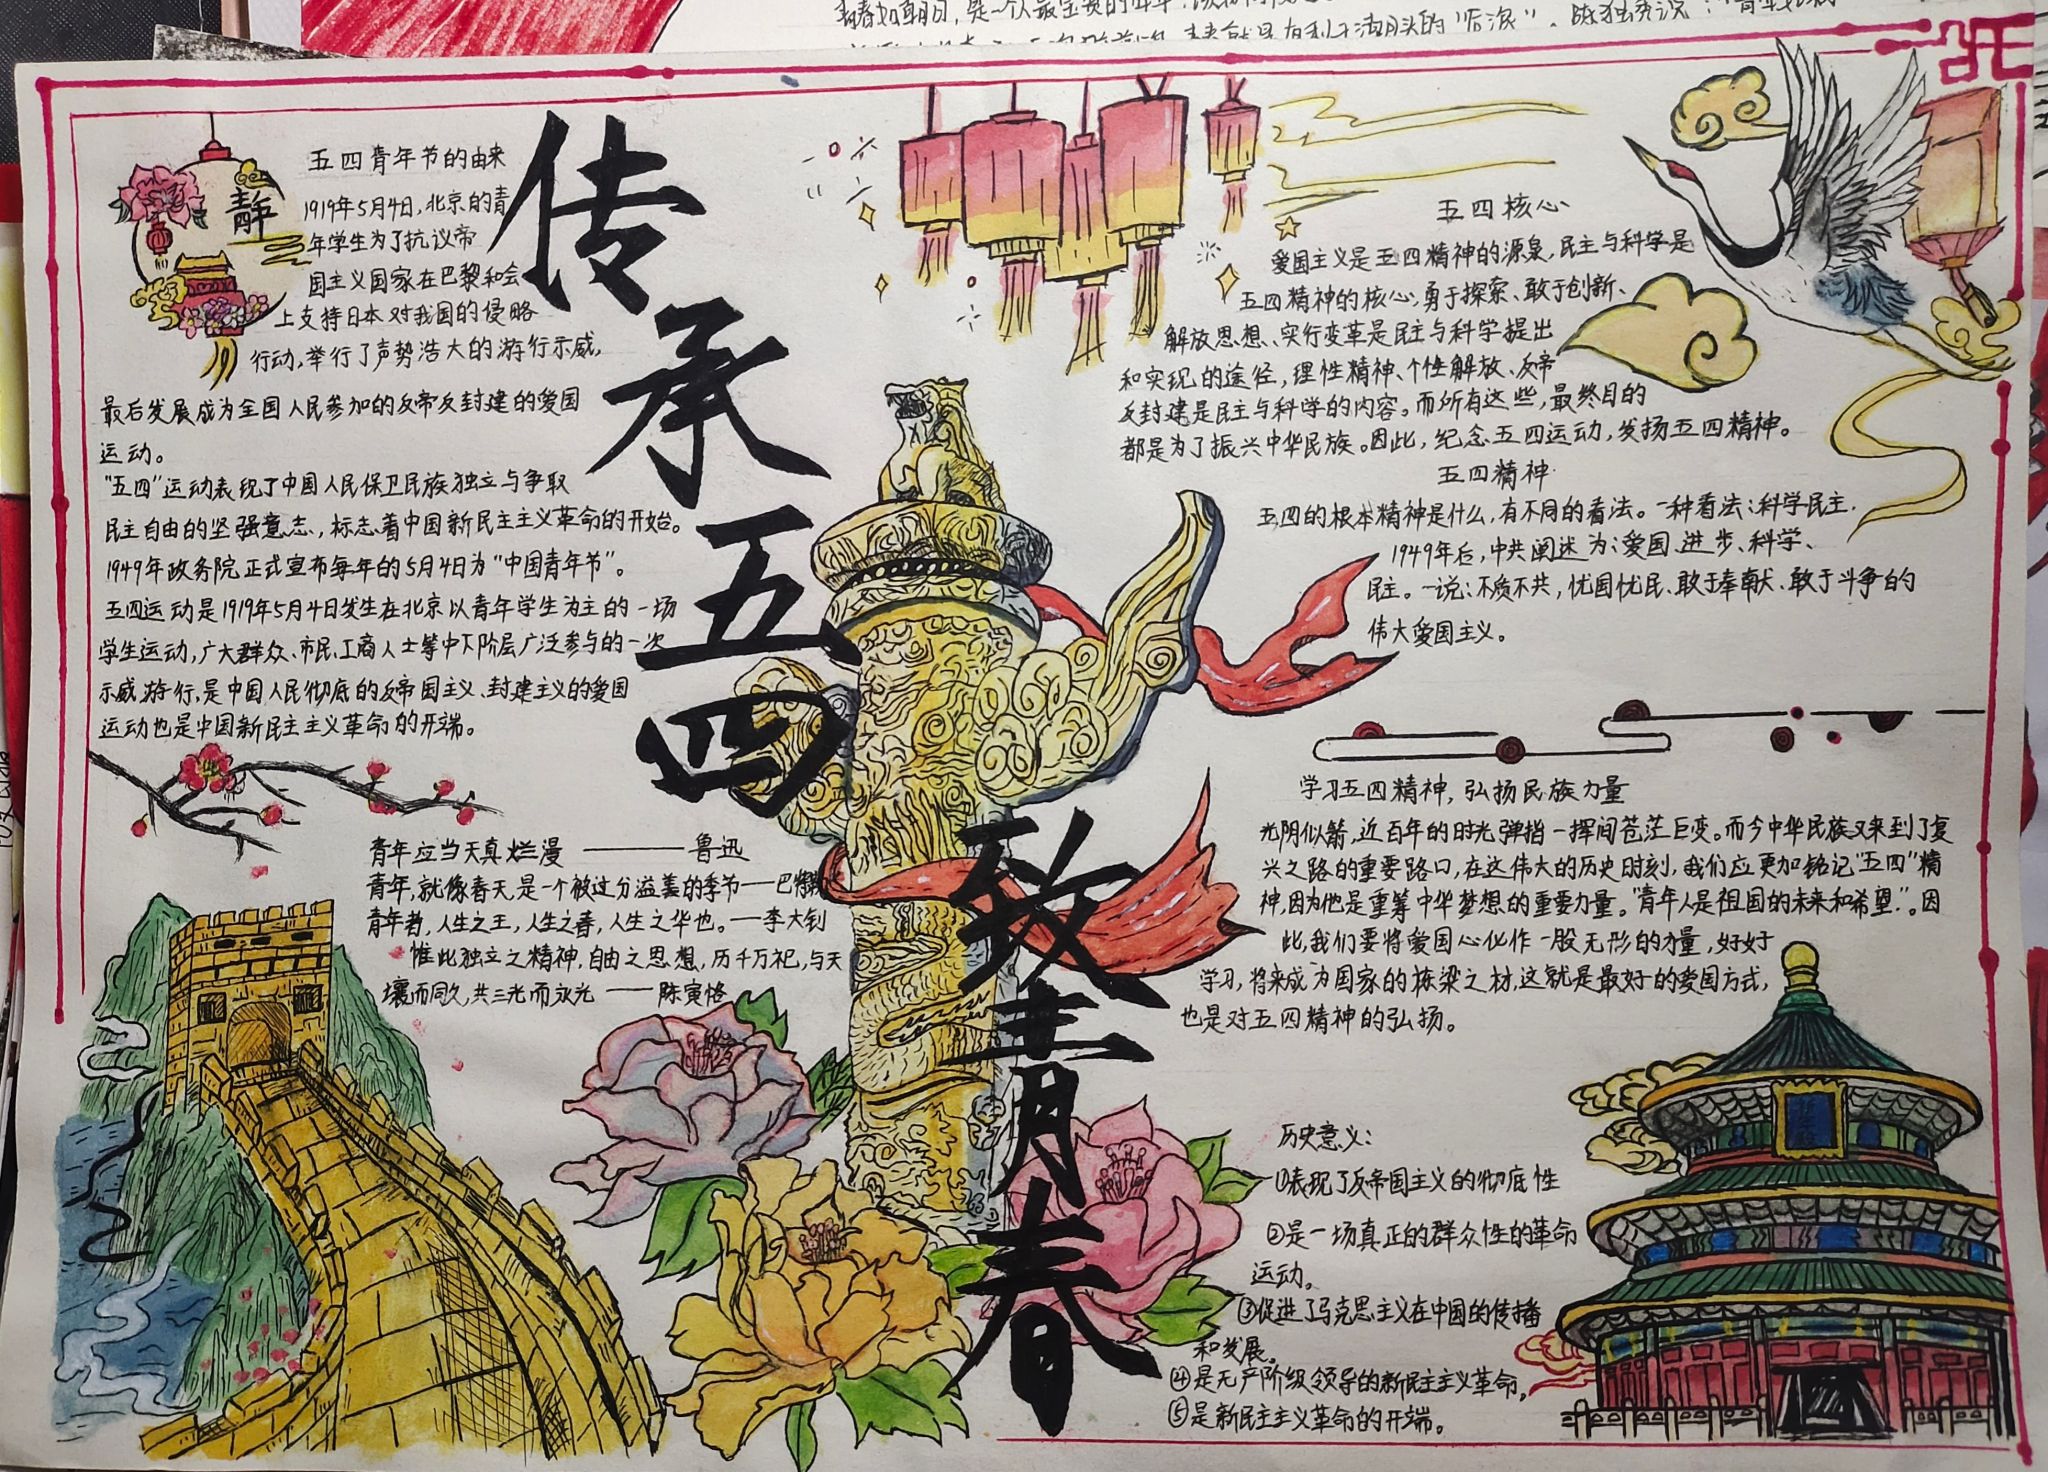 传承五四
致青春
静
五四青年节的由来
1919年5月4日，北京的青
年学生为了抗议帝
国主义国家在巴黎和会
上支持日本对我国的侵略
行动，举行了声势浩大的游行示威，
最后发展成为全国人民参加的反帝反封建的爱国
运动。
"五四"运动表现了中国人民保卫民族独立与争取
民主自由的坚强意志，标志着中国新民主主义革命的开始。
1949年政务院正式宣布每年的5月4日为"中国青年节"。
五四运动是1919年5月4日发生在北京以青年学生为主的一场
学生运动，广大群众、市民、工商人士等中下阶层广泛参与的一次
示威游行，是中国人民彻底的反帝国主义、封建主义的爱国
运动也是中国新民主主义革命的开端。
青年应当天真烂漫 ——鲁迅
青年，就像春天，是一个被过分溢美的季节——巴特勒
青年者，人生之王，人生之春，人生之华也。——李大钊
惟此独立之精神，自由之思想，历千万祀，与天
壤而同久，共三光而永光 ——陈寅恪
五四核心
爱国主义是五四精神的源泉，民主与科学是
五四精神的核心；勇于探索、敢于创新、
解放思想、实行变革是民主与科学提出
和实现的途径，理性精神、个性解放、反帝
反封建是民主与科学的内容。而所有这些，最终目的
都是为了振兴中华民族。因此，纪念五四运动，发扬五四精神。
五四精神
五四的根本精神是什么，有不同的看法。一种看法：科学民主.
1949年后，中共阐述为：爱国、进步、科学、
民主。一说：不质不共，忧国忧民、敢于奉献、敢于斗争的
伟大爱国主义。
学习五四精神，弘扬民族力量
光阴似箭，近百年的时光弹指一挥间苍茫巨变。而今中华民族又来到了复
兴之路的重要路口，在这伟大的历史时刻，我们应更加铭记"五四"精
神，因为他是重筹中华梦想的重要力量。"青年人是祖国的未来和希望."。因
此，我们要将爱国心化作一股无形的力量，好好
学习，将来成为国家的栋梁之材，这就是最好的爱国方式，
也是对五四精神的弘扬。
历史意义：
①表现了反帝国主义的彻底性
②是一场真正的群众性的革命
运动。
③促进了马克思主义在中国的传播
和发展。
④是无产阶级领导的新民主主义革命，
⑤是新民主主义革命的开端。